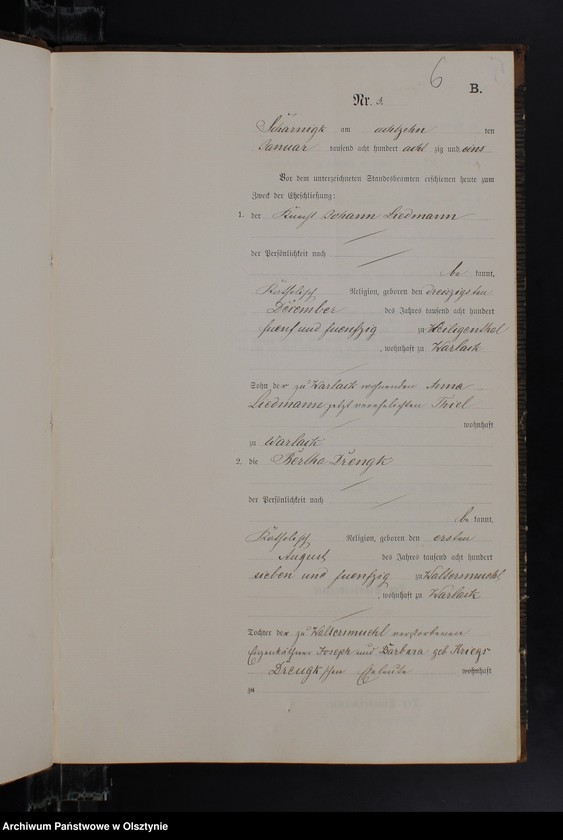 6
B.
Nr. 3.
Scharnigk am achtzehn ten
Januar tausend acht hundert acht zig und eins
Vor dem unterzeichneten Standesbeamten erschienen heute zum
Zweck der Eheschließung:
1. der Knecht Johann Liedmann
der Persönlichkeit nach
be kannt,
Katholisch Religion, geboren den dreizigsten
December des Jahres tausend acht hundert
fuenf und fuenfzig zu Heiligenthal
, wohnhaft zu Warlack
Sohn der zu Warlack wohnenden Anna
Liedmann jetzt verehelichten Thiel
wohnhaft
zu Warlack
2. die Bertha Drengk
der Persönlichkeit nach
be kannt,
Katholisch Religion, geboren den ersten
August des Jahres tausend acht hundert
sieben und fuenfzig zu Waltersmuehl
, wohnhaft zu Warlack
Tochter der zu Waltersmuehl verstorbenen
Eigenkäthner Joseph und Barbara geb Kriegs
Drengk'schen Eheleute wohnhaft
zu
Archiwum Państwowe w Olsztynie